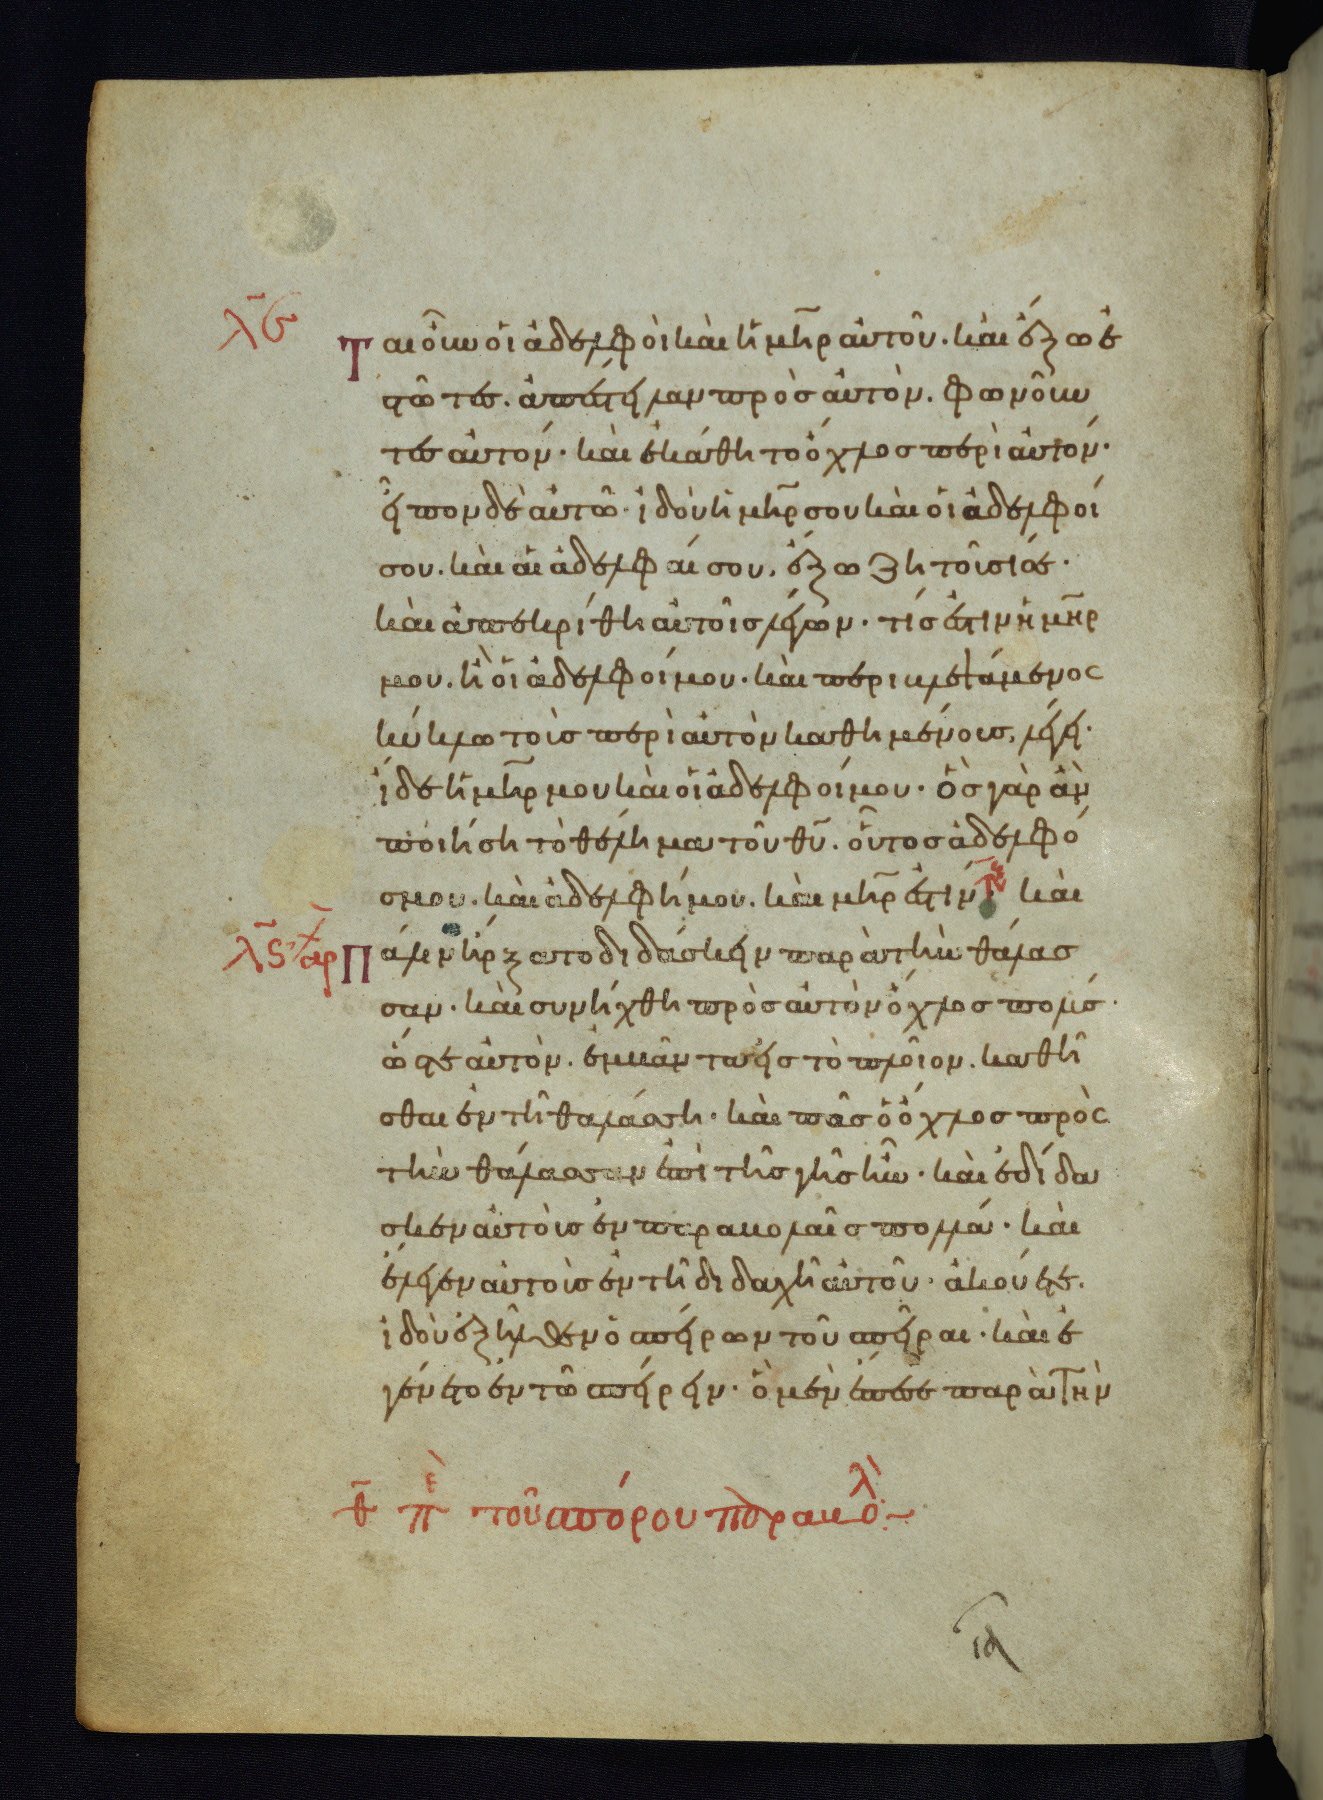 λε
ται οὖν οἱ ἀδελφοὶ καὶ ἡ μηρ αὐτοῦ. καὶ ἔξω ἑ
στῶτες. ἀπέστειλαν πρὸς αὐτὸν. φωνοῦν
τες αὐτόν· καὶ ἐκάθητο ὄχλος περὶ αὐτόν·
εἶπον δὲ αὐτῶ· ἰδοὺ ἡ μηρ σου καὶ οἱ ἀδελφοί
σου. καὶ αἱ ἀδελφαί σου. ἔξω ζητοῦσί σε·
καὶ ἀπεκρίθη αὐτοῖς λέγων· τίς ἐστιν ἡ μηρ
μου. ἢ οἱ ἀδελφοί μου· καὶ περιβλεψάμενος
κύκλω τοὺς περὶ αὐτὸν καθημένους, λέγει·
ἴδε ἡ μηρ μου καὶ οἱ ἀδελφοί μου· ὃς γὰρ ἂν
ποιήση τὸ θέλημα τοῦ θυ. οὗτος ἀδελφό
ς μου. καὶ ἀδελφή μου. καὶ μηρ ἐστίν· τε καὶ
λς αρ πάλιν ἤρξατο διδάσκειν παρὰ τὴν θάλασ
σαν. καὶ συνήχθη πρὸς αὐτὸν ὄχλος πολύς·
ὥστε αὐτὸν. ἐμβάντα εἰς τὸ πλοῖον. καθῆ
σθαι ἐν τῆ θαλάσση· καὶ πᾶς ὁ ὄχλος πρὸς
τὴν θάλασσαν ἐπὶ τῆς γῆς ἦν· καὶ ἐδίδα
σκεν αὐτοὺς ἐν παραβολαῖς πολλά· καὶ
ἔλεγεν αὐτοῖς ἐν τῆ διδαχῆ αὐτοῦ· ἀκούετε.
ἰδοὺ ἐξῆλθεν ὁ σπείρων τοῦ σπεῖραι· καὶ ἐ
γένετο ἐν τῶ σπείρειν· ὃ μὲν ἔπεσε παρὰ τὴν
θ πε τοῦ σπόρου παραβολ
ια